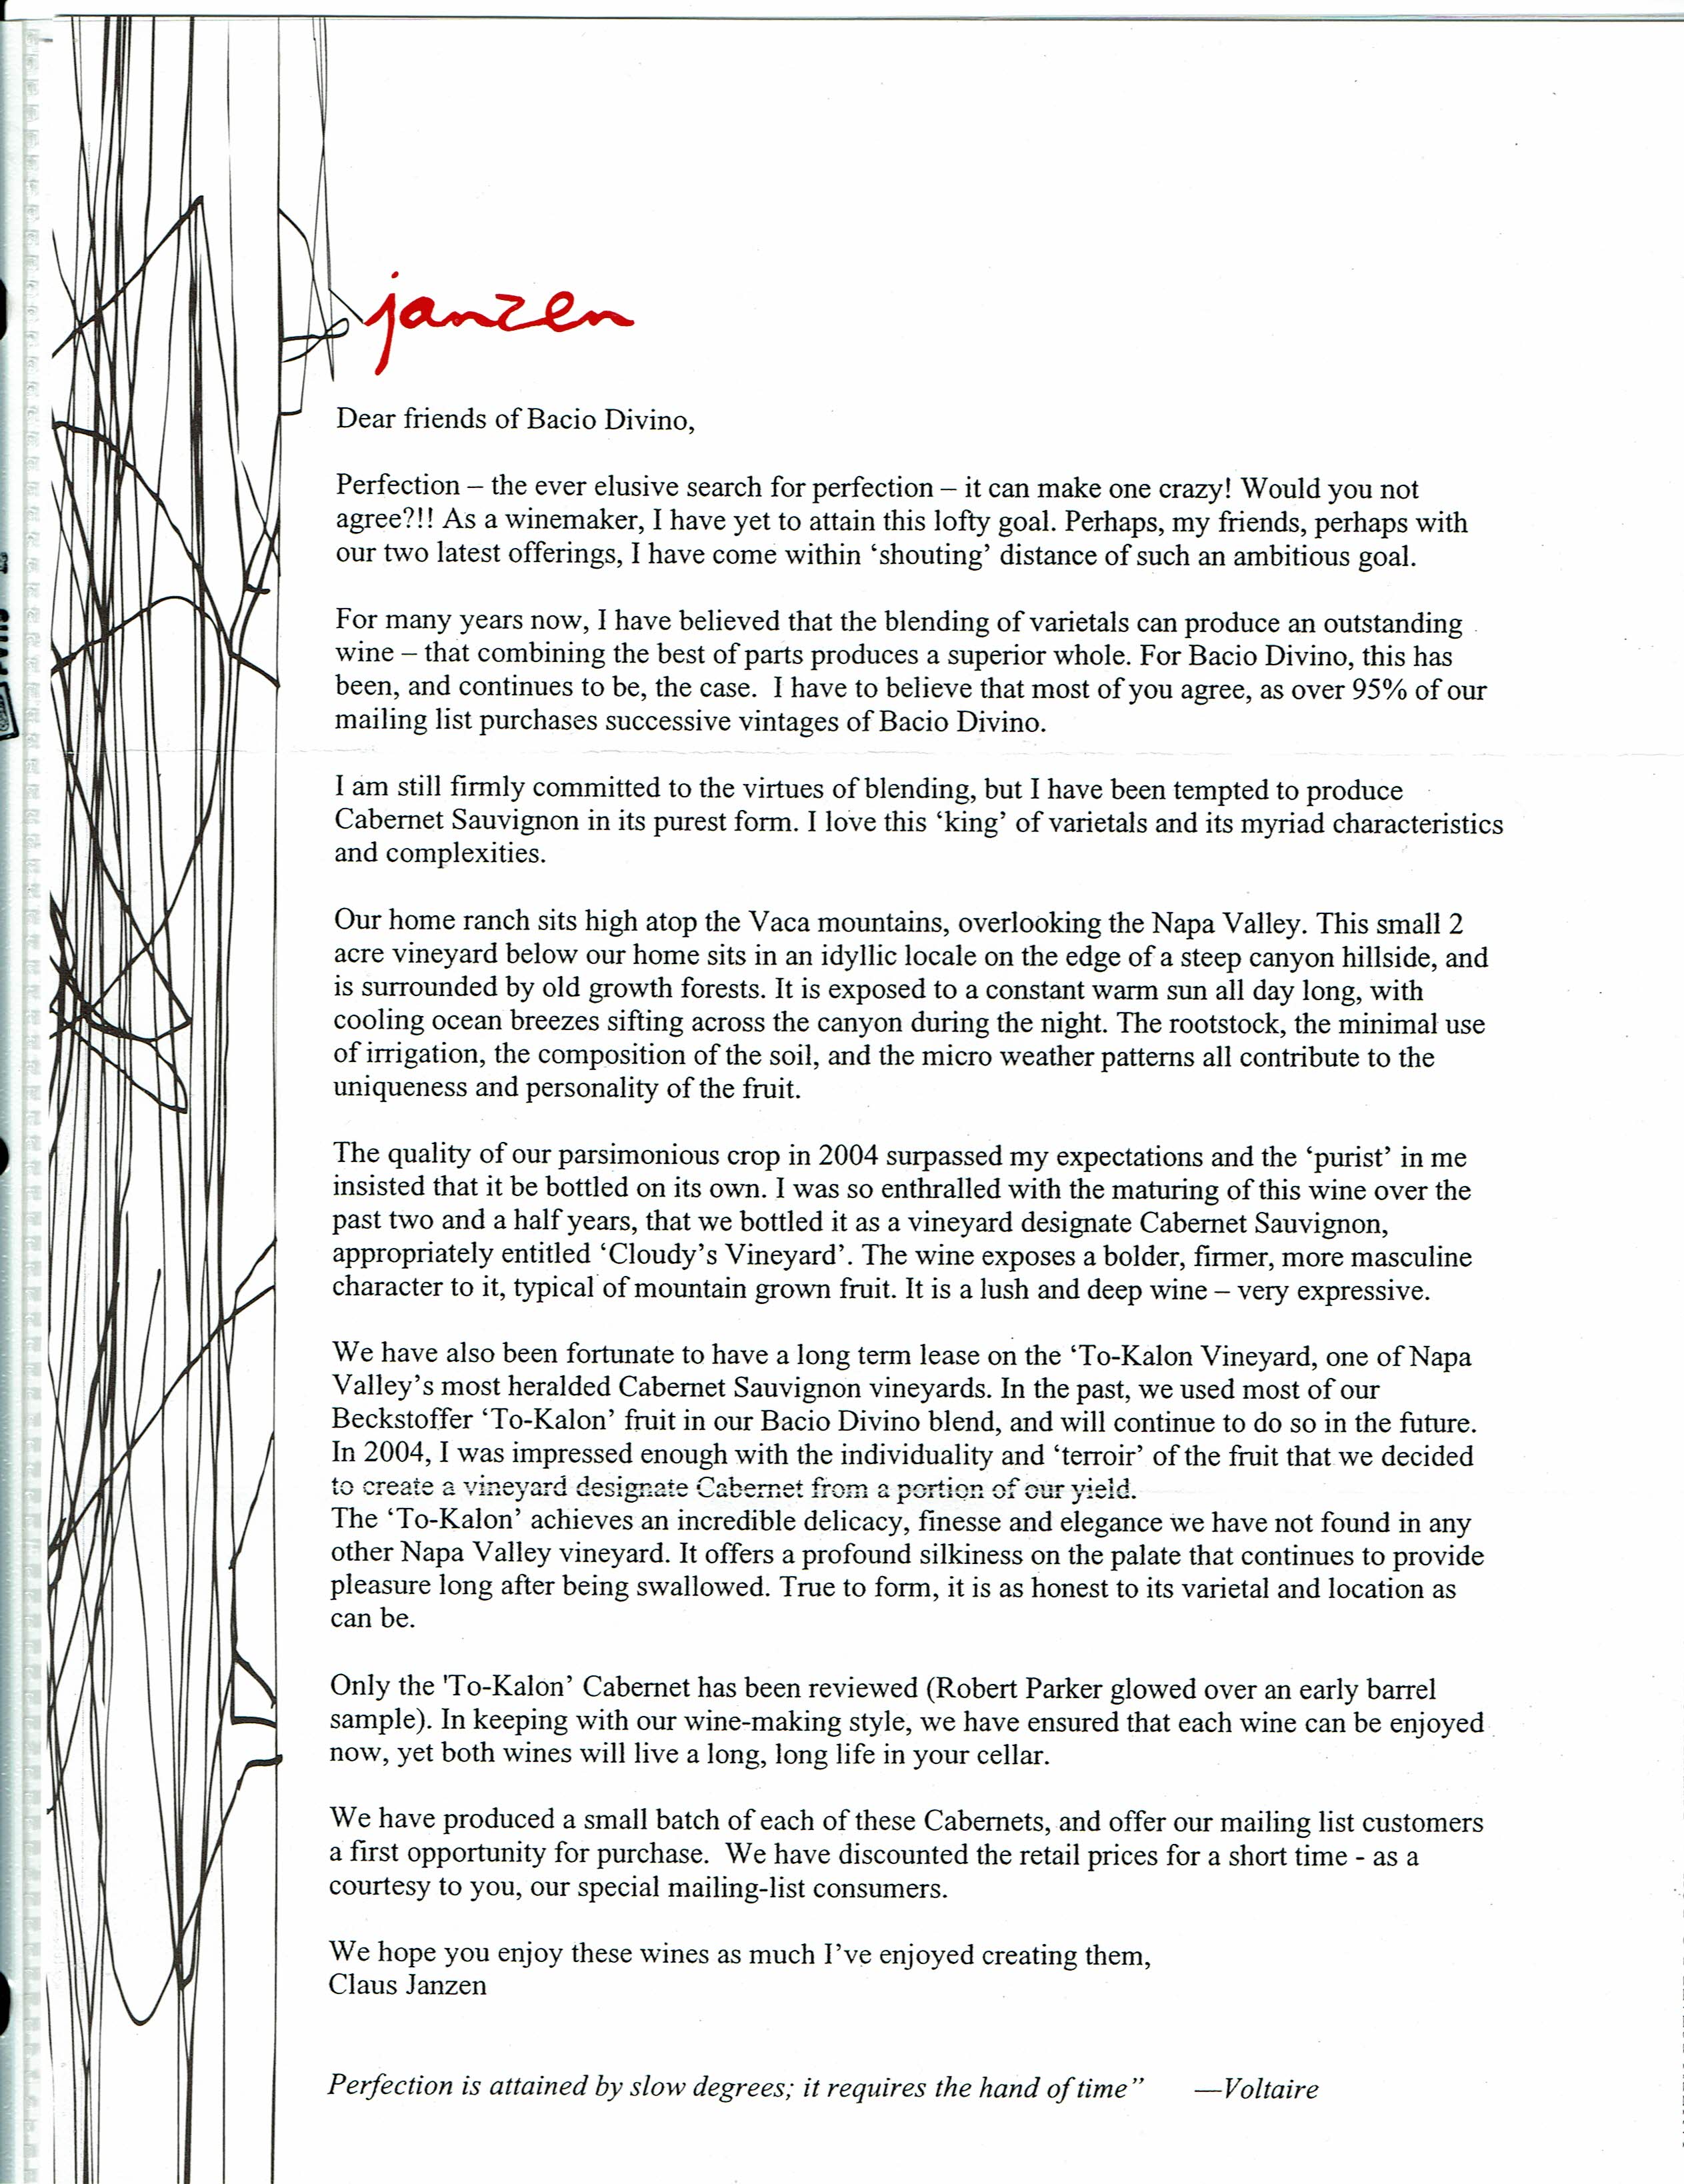 janzen
Dear friends of Bacio Divino,
Perfection – the ever elusive search for perfection – it can make one crazy! Would you not
agree?!! As a winemaker, I have yet to attain this lofty goal. Perhaps, my friends, perhaps with
our two latest offerings, I have come within ‘shouting’ distance of such an ambitious goal.
For many years now, I have believed that the blending of varietals can produce an outstanding
wine – that combining the best of parts produces a superior whole. For Bacio Divino, this has
been, and continues to be, the case.  I have to believe that most of you agree, as over 95% of our
mailing list purchases successive vintages of Bacio Divino.
I am still firmly committed to the virtues of blending, but I have been tempted to produce
Cabernet Sauvignon in its purest form. I love this ‘king’ of varietals and its myriad characteristics
and complexities.
Our home ranch sits high atop the Vaca mountains, overlooking the Napa Valley. This small 2
acre vineyard below our home sits in an idyllic locale on the edge of a steep canyon hillside, and
is surrounded by old growth forests. It is exposed to a constant warm sun all day long, with
cooling ocean breezes sifting across the canyon during the night. The rootstock, the minimal use
of irrigation, the composition of the soil, and the micro weather patterns all contribute to the
uniqueness and personality of the fruit.
The quality of our parsimonious crop in 2004 surpassed my expectations and the ‘purist’ in me
insisted that it be bottled on its own. I was so enthralled with the maturing of this wine over the
past two and a half years, that we bottled it as a vineyard designate Cabernet Sauvignon,
appropriately entitled ‘Cloudy’s Vineyard’. The wine exposes a bolder, firmer, more masculine
character to it, typical of mountain grown fruit. It is a lush and deep wine – very expressive.
We have also been fortunate to have a long term lease on the ‘To-Kalon Vineyard, one of Napa
Valley’s most heralded Cabernet Sauvignon vineyards. In the past, we used most of our
Beckstoffer ‘To-Kalon’ fruit in our Bacio Divino blend, and will continue to do so in the future.
In 2004, I was impressed enough with the individuality and ‘terroir’ of the fruit that we decided
to create a vineyard designate Cabernet from a portion of our yield.
The ‘To-Kalon’ achieves an incredible delicacy, finesse and elegance we have not found in any
other Napa Valley vineyard. It offers a profound silkiness on the palate that continues to provide
pleasure long after being swallowed. True to form, it is as honest to its varietal and location as
can be.
Only the 'To-Kalon’ Cabernet has been reviewed (Robert Parker glowed over an early barrel
sample). In keeping with our wine-making style, we have ensured that each wine can be enjoyed
now, yet both wines will live a long, long life in your cellar.
We have produced a small batch of each of these Cabernets, and offer our mailing list customers
a first opportunity for purchase.  We have discounted the retail prices for a short time - as a
courtesy to you, our special mailing-list consumers.
We hope you enjoy these wines as much I’ve enjoyed creating them,
Claus Janzen
Perfection is attained by slow degrees; it requires the hand of time” —Voltaire